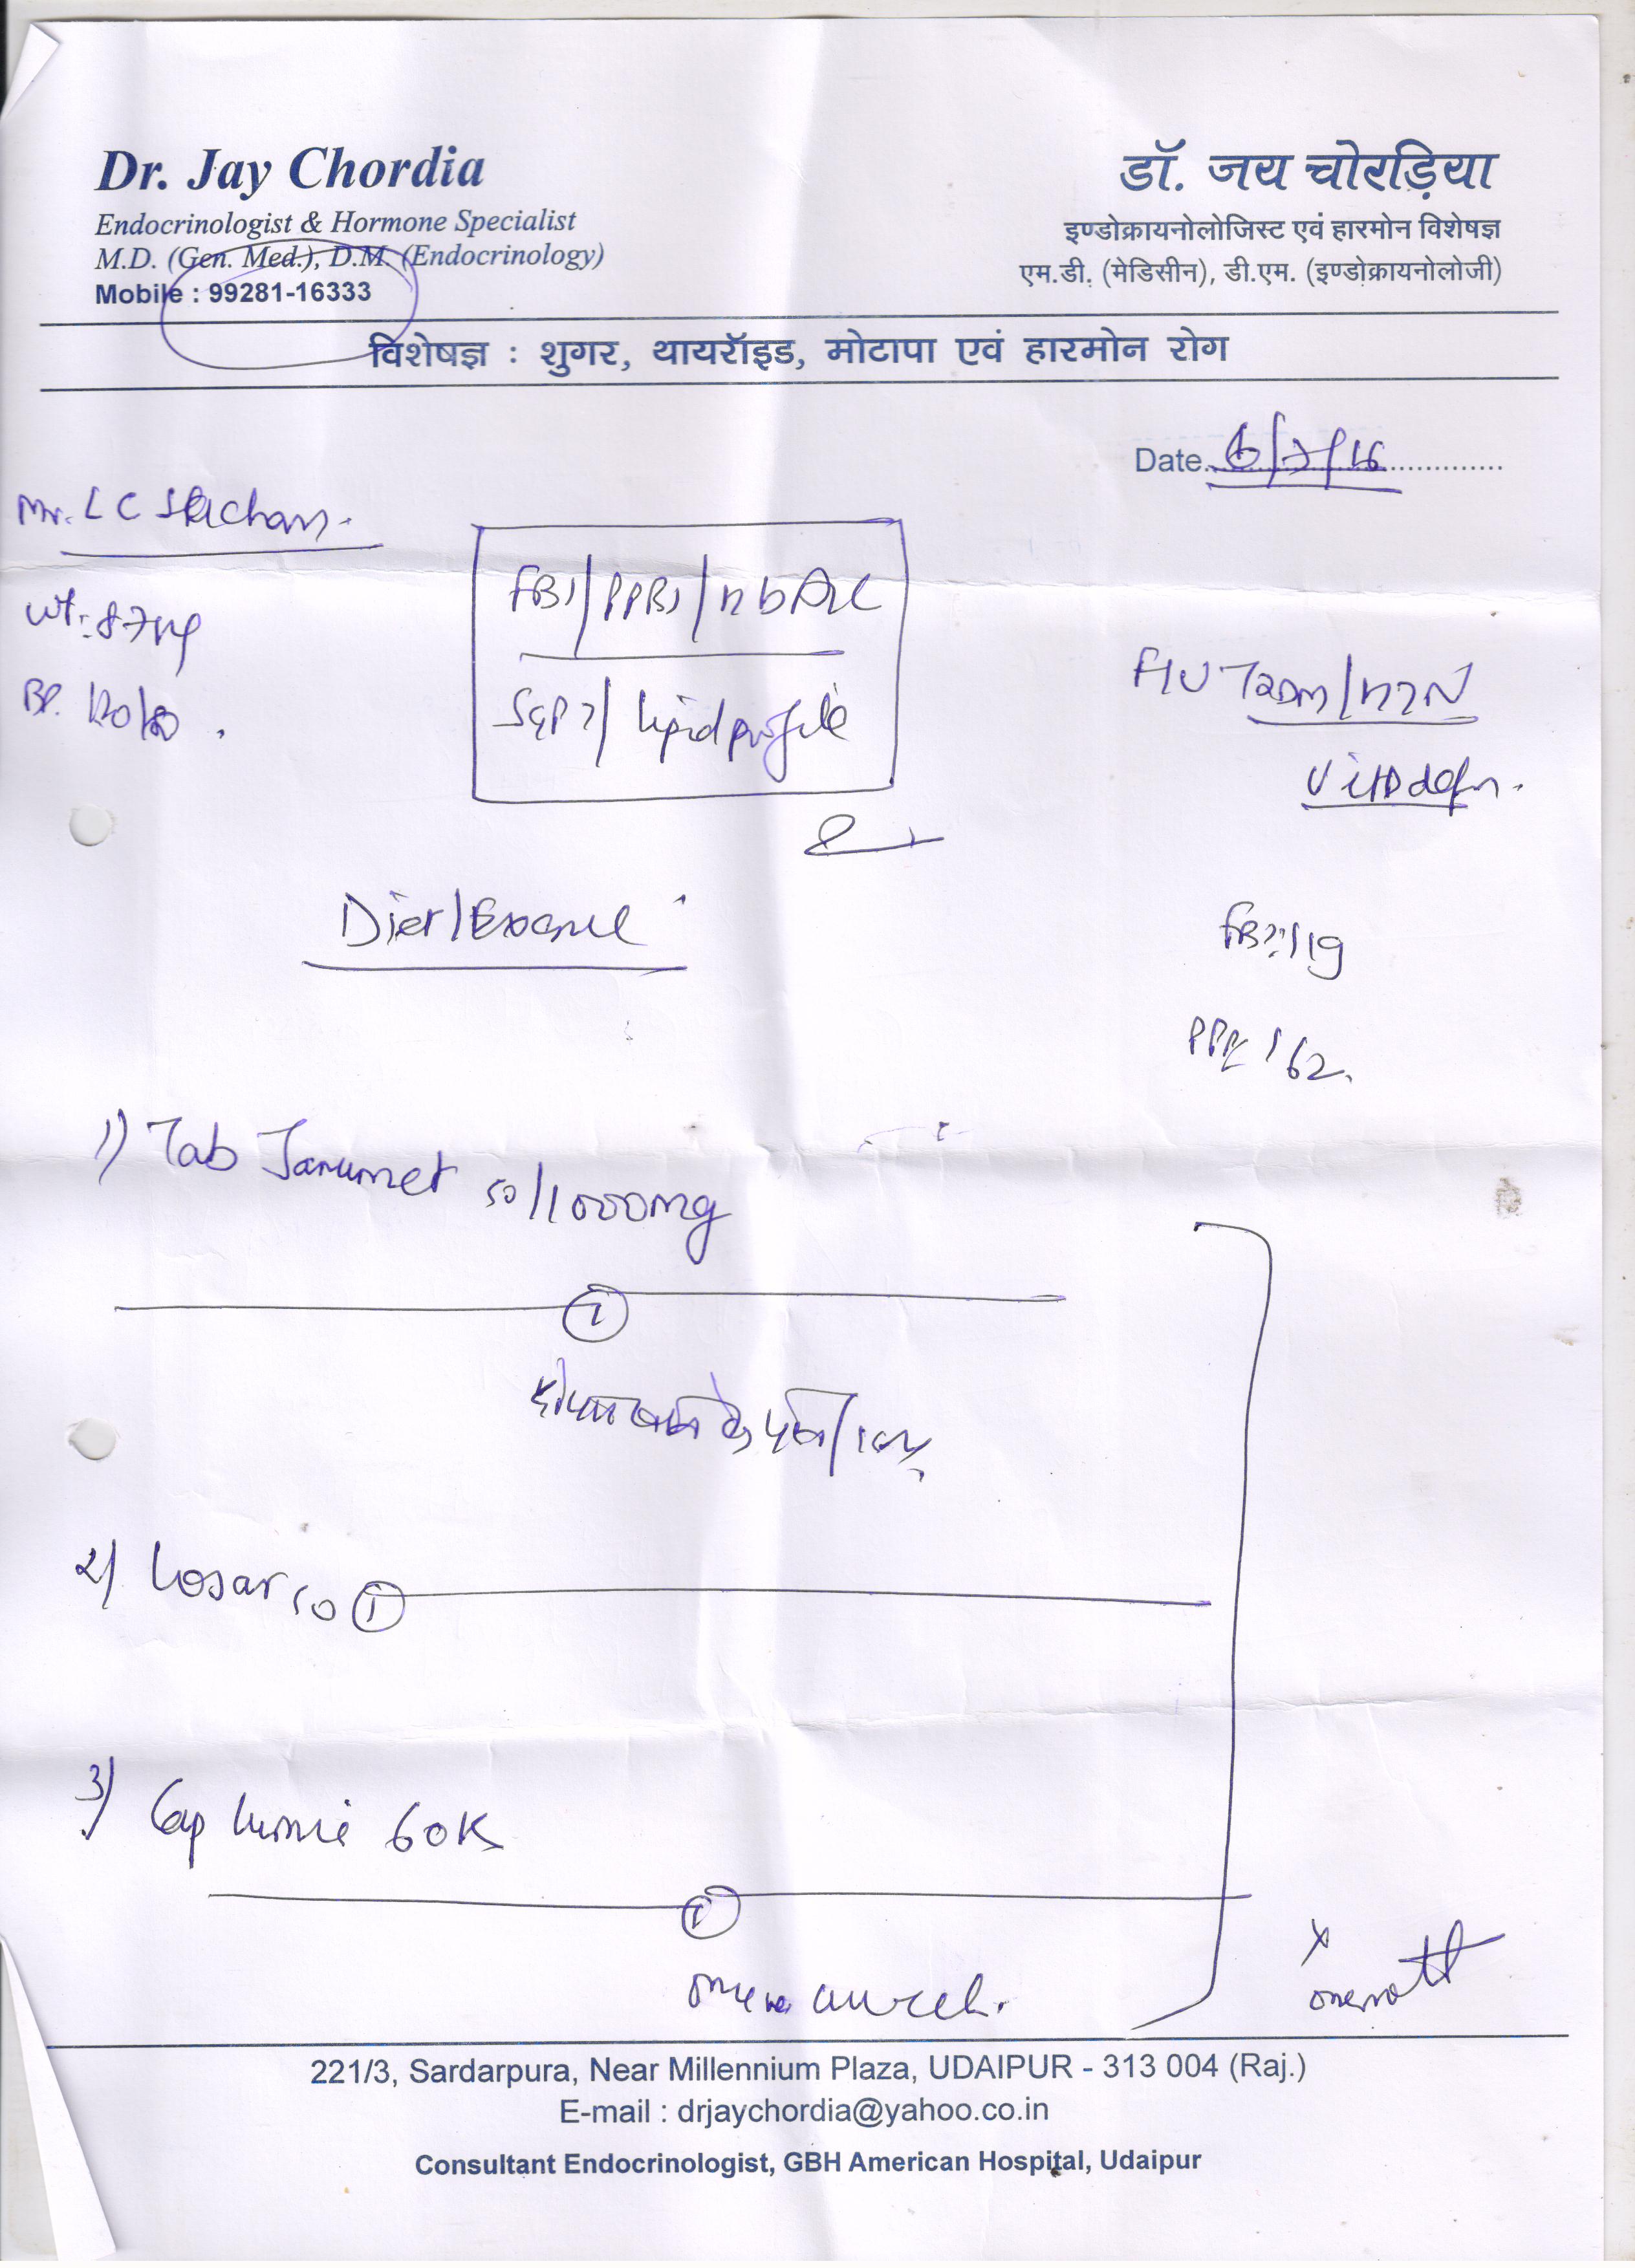 Dr. Jay Chordia
Endocrinologist & Hormone Specialist
M.D. (Gen. Med.), D.M. (Endocrinology)
Mobile : 99281-16333
डॉ. जय चोरड़िया
इण्डोक्रायनोलोजिस्ट एवं हारमोन विशेषज्ञ
एम.डी. (मेडिसीन), डी.एम. (इण्डोक्रायनोलोजी)
विशेषज्ञ : शुगर, थायरॉइड, मोटापा एवं हारमोन रोग
Date 6/7/16
Mr. L C
Wt: 87kg
BP.
FBS/PPBS/HbA1c
SGPT/ lipid profile
F/U T2DM/HTN
Vit D defn.
Diet/Exercise
FBS: 119
PPBS 162.
1) Tab Janumet 50/1000mg
1
2) Losar 50 1
3) Cap 60K
1
once a week.
x one month
221/3, Sardarpura, Near Millennium Plaza, UDAIPUR - 313 004 (Raj.)
E-mail : drjaychordia@yahoo.co.in
Consultant Endocrinologist, GBH American Hospital, Udaipur